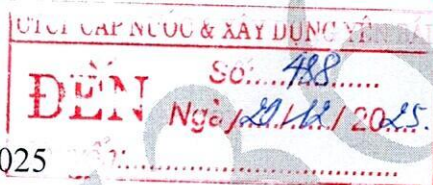 CTCP CẤP NƯỚC & XÂY DỰNG YÊN BÁI
ĐẾN
Số:.....488......
Ngày 20/12/2025.
025